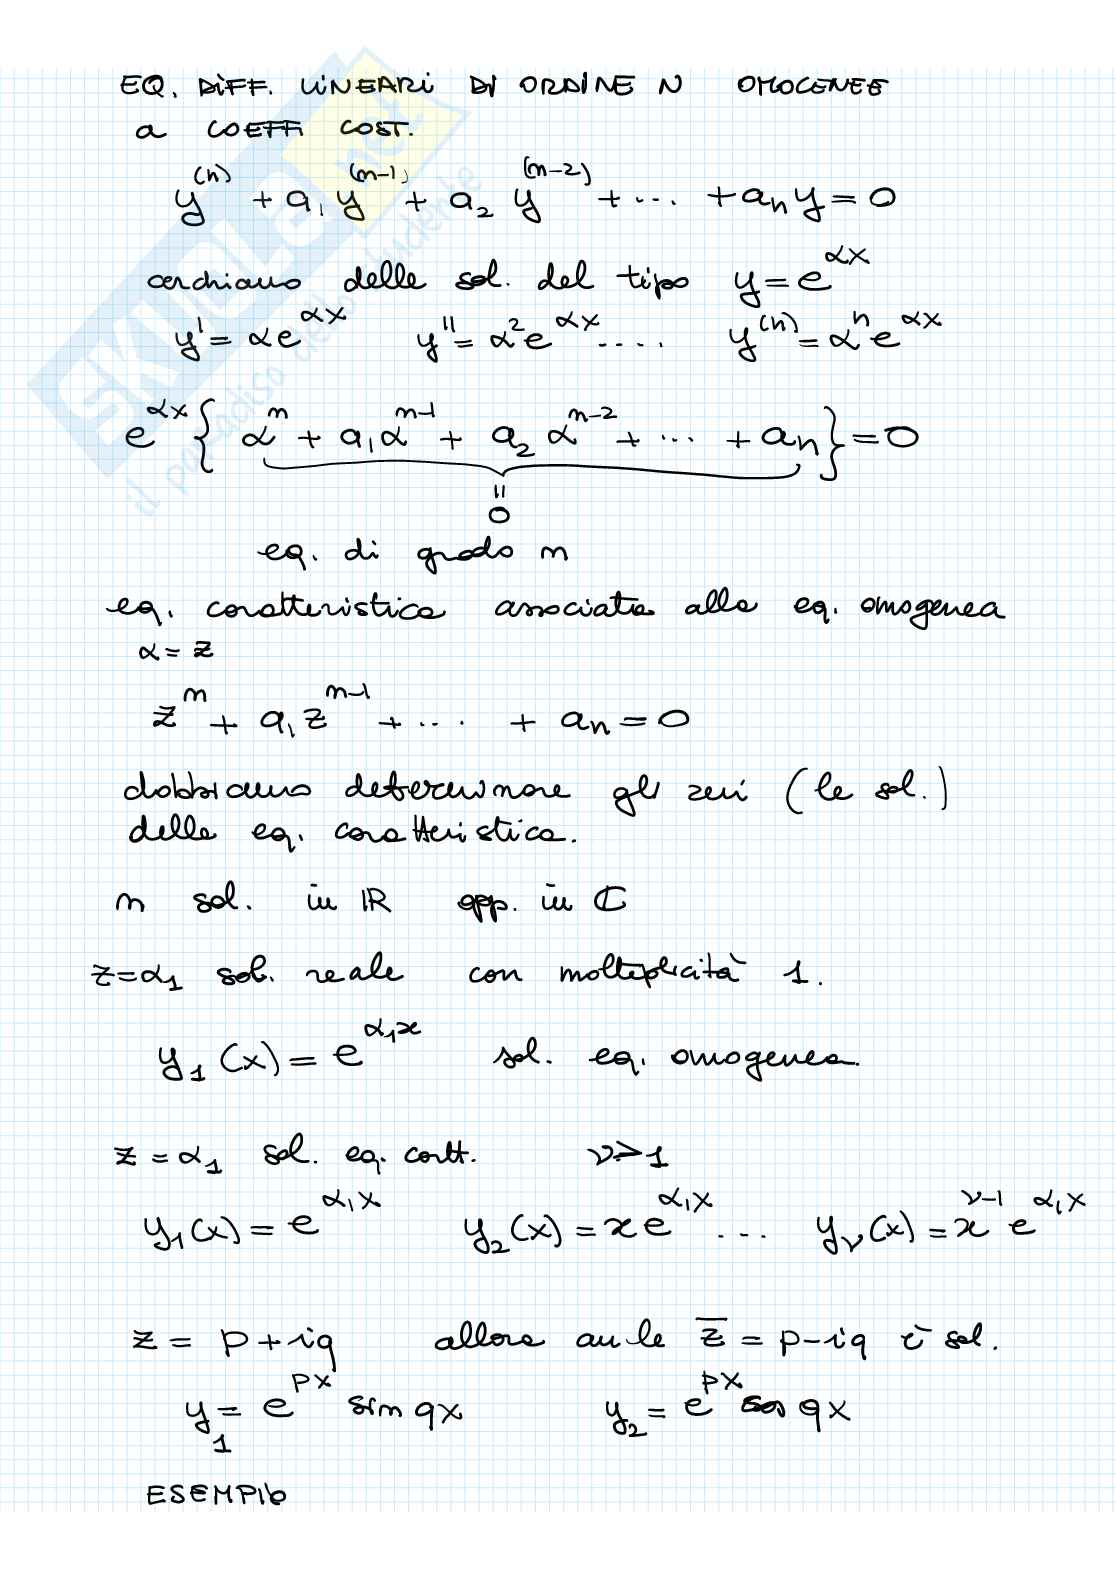 EQ. DIFF. LINEARI DI ORDINE N OMOGENEE
a COEFFI COST.
y⁽ⁿ⁾ + a₁ y⁽ⁿ⁻¹⁾ + a₂ y⁽ⁿ⁻²⁾ + ... + aₙ y = 0
cerchiamo delle sol. del tipo y = e^{αx}
y' = αe^{αx} y'' = α²e^{αx} .... y⁽ⁿ⁾ = αⁿe^{αx}
e^{αx} { αⁿ + a₁αⁿ⁻¹ + a₂ αⁿ⁻² + ... + aₙ } = 0
=
0
eq. di grado n
eq. caratteristica associata alla eq. omogenea
α = z
zⁿ + a₁ zⁿ⁻¹ + ... + aₙ = 0
dobbiamo determinare gli zeri (le sol.)
della eq. caratteristica.
n sol. in ℝ opp. in ℂ
z = α₁ sol. reale con molteplicità 1.
y₁(x) = e^{α₁x} sol. eq. omogenea.
z = α₁ sol. eq. caratt. ν > 1
y₁(x) = e^{α₁x} y₂(x) = xe^{α₁x} ... y_ν(x) = x^{ν-1} e^{α₁x}
z = p + iq allora anche z̅ = p - iq è sol.
y₁ = e^{px} sin qx y₂ = e^{px} cos qx
ESEMPIO
SKUOLA.net
il paradiso dello studente